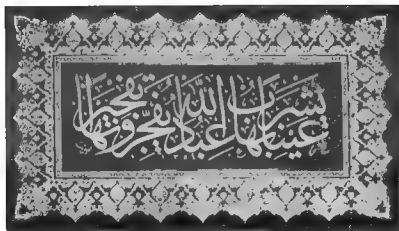 عينا يشرب بها عباد الله يفجرونها تفجيرا